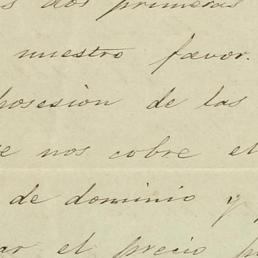 s dos primeras
nuestro favor.
posesión de las
e nos cobre el
de dominio y
ar el precio p